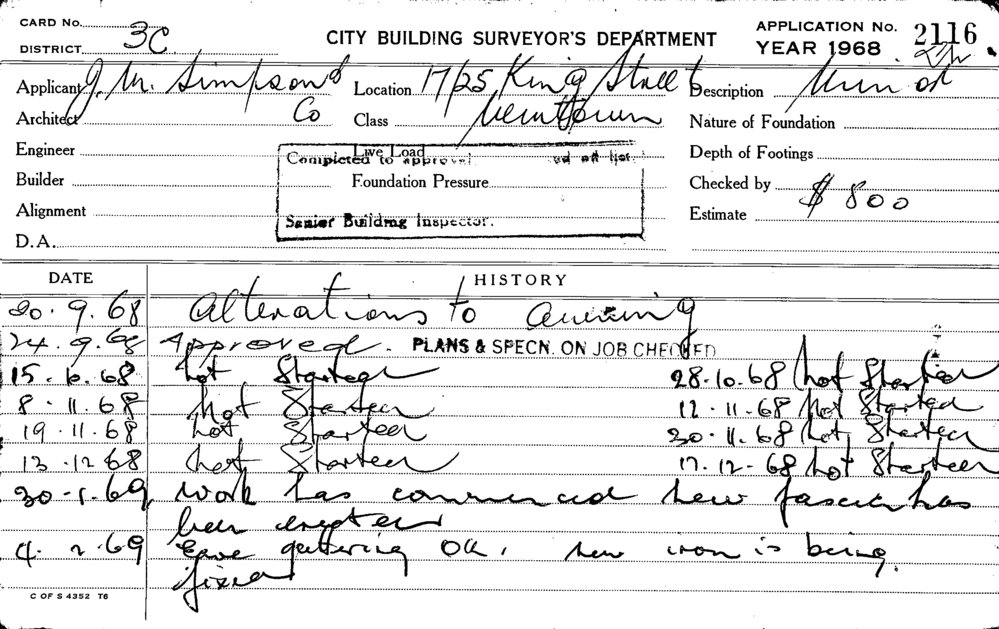 CARD No.
DISTRICT 3C
CITY BUILDING SURVEYOR'S DEPARTMENT
APPLICATION No. 2116
YEAR 1968
Applicant J. M. Simpson &
Location 17/25 King Street
Description Minor
Architect Co
Class Newtown
Nature of Foundation
Engineer
Live Load
Depth of Footings
Completed to approval
Builder
Foundation Pressure
Checked by
Alignment
Estimate $ 800
Senior Building Inspector.
D.A.
DATE HISTORY
20.9.68 Alterations to awning
24.9.68 Approved. PLANS & SPECN. ON JOB CHECKED
68 Not Started 28.10.68 Not Started
8.11.68 Not Started 12.11.68 Not Started
19.11.68 Not Started 11.68 Not Started
13.12.68 Not Started 17.12.68 Not Started
30.1.69 Work has commenced new fascia has
been erected
4.2.69 Eave guttering OK. new iron is being
fixed
C OF S 4352 T6